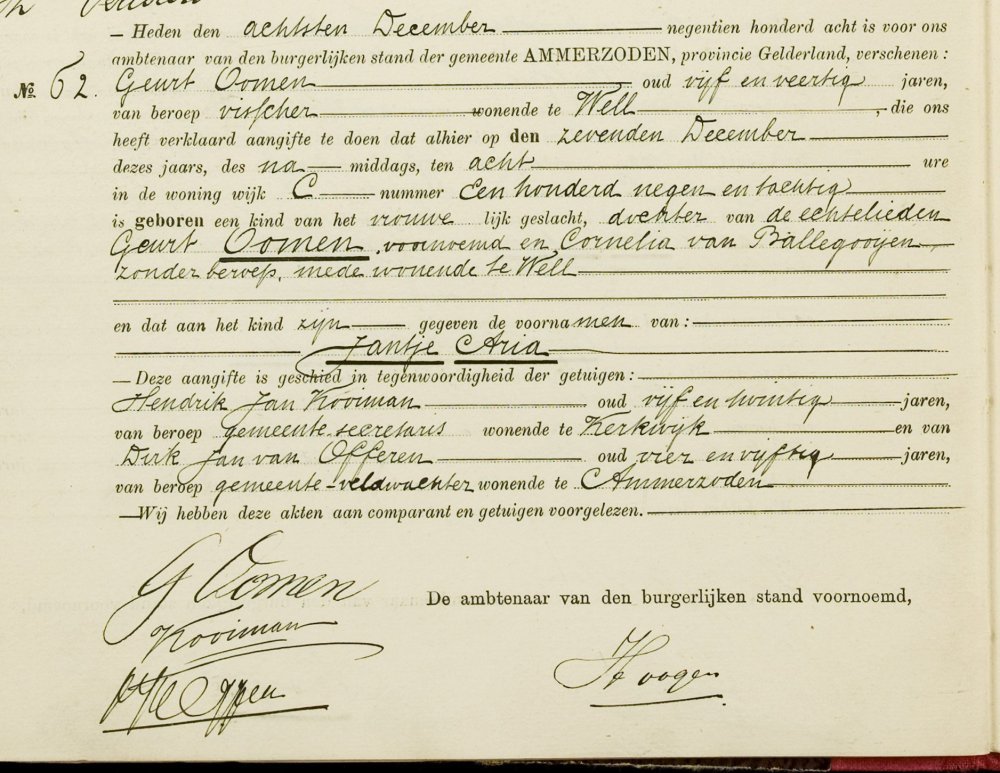 — Heden den achtsten December negentien honderd acht is voor ons
ambtenaar van den burgerlijken stand der gemeente AMMERZODEN, provincie Gelderland, verschenen:
No 62. Geurt Oomen oud vijf en veertig jaren,
van beroep visscher wonende te Well, die ons
heeft verklaard aangifte te doen dat alhier op den zevenden December
dezes jaars, des na middags, ten acht ure
in de woning wijk C nummer Een honderd negen en tachtig
is geboren een kind van het vrouwe lijk geslacht, dochter van de echtelieden
Geurt Oomen voornoemd en Cornelia van Ballegooijen
zonder beroep, mede wonende te Well
en dat aan het kind zijn gegeven de voornamen van:
Jantje Aria
— Deze aangifte is geschied in tegenwoordigheid der getuigen:
Hendrik Jan Kooiman oud vijf en twintig jaren,
van beroep gemeente-secretaris wonende te Kerkwijk en van
Dirk Jan van Offeren oud vier en vijftig jaren,
van beroep gemeente-veldwachter wonende te Ammerzoden
— Wij hebben deze akten aan comparant en getuigen voorgelezen.
G Oomen
De ambtenaar van den burgerlijken stand voornoemd,
Kooiman